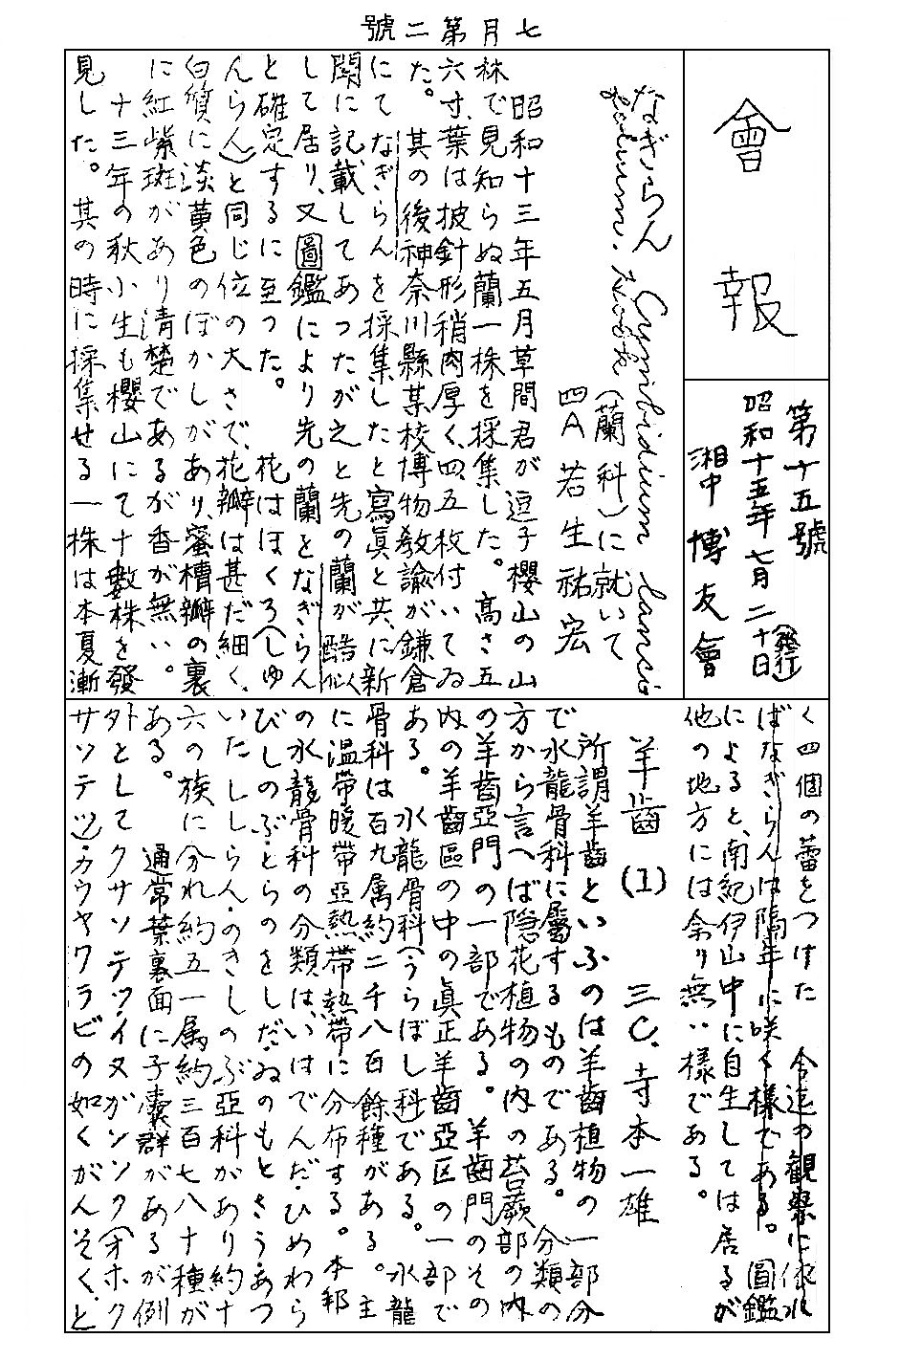 七月第二號
會報
第十五號
昭和十五年七月二十日(發行)
湘中博友會
なぎらん Cymbidium lancifolium
(蘭科)に就いて
四A 若生祐宏
昭和十三年五月草間君が逗子櫻山の山
林で見知らぬ蘭一株を採集した。高さ五
六寸、葉は披針形稍肉厚く、四、五枚付いてゐ
た。其の後神奈川縣某校博物教諭が鎌倉
にてなぎらんを採集したと寫眞と共に新
聞に記載してあつたが之と先の蘭が酷似
して居り、又圖鑑により先の蘭となぎらん
と確定するに至つた。花はほくろ(しゆ
んらん)と同じ位の大さで、花瓣は甚だ細く、
白質に淡黄色のぼかしがあり、蜜槽瓣の裏
に紅紫斑があり清楚であるが香が無い。
十三年の秋小生も櫻山にて十數株を發
見した。其の時に採集せる一株は本夏漸
く四個の蕾をつけた 今迄の観察に依れ
ばなぎらんは隔年に咲く樣である。圖鑑
によると、南紀伊山中に自生しては居るが
他の地方には余り無い樣である。
羊齒(1) 三C.寺本一雄
所謂羊齒といふのは羊齒植物の一部分
で水龍骨科に屬するものである。分類の
方から言へば隠花植物の内の苔蕨部の内
の羊齒亞門の一部である。羊齒門のその
内の羊齒區の中の眞正羊齒亞区の一部で
ある。水龍骨科(うらぼし科)である。水龍
骨科は百九属約二千八百餘種がある。主
に温帶暖帶亞熱帶熱帶に分布する。本邦
の水龍骨科の分類は、いはでんだ・ひめわら
びしのぶ・とらのをしだ・ゐのもとさう・あつ
いたししらん・のきしのぶ亞科があり約十
六の族に分れ約五一属約三百七八十種が
ある。通常葉裏面に子囊群があるが例
外としてクサソテツ・イヌガンソク(オホク
サソテツ)・カウヤワラビの如くがんそく、と